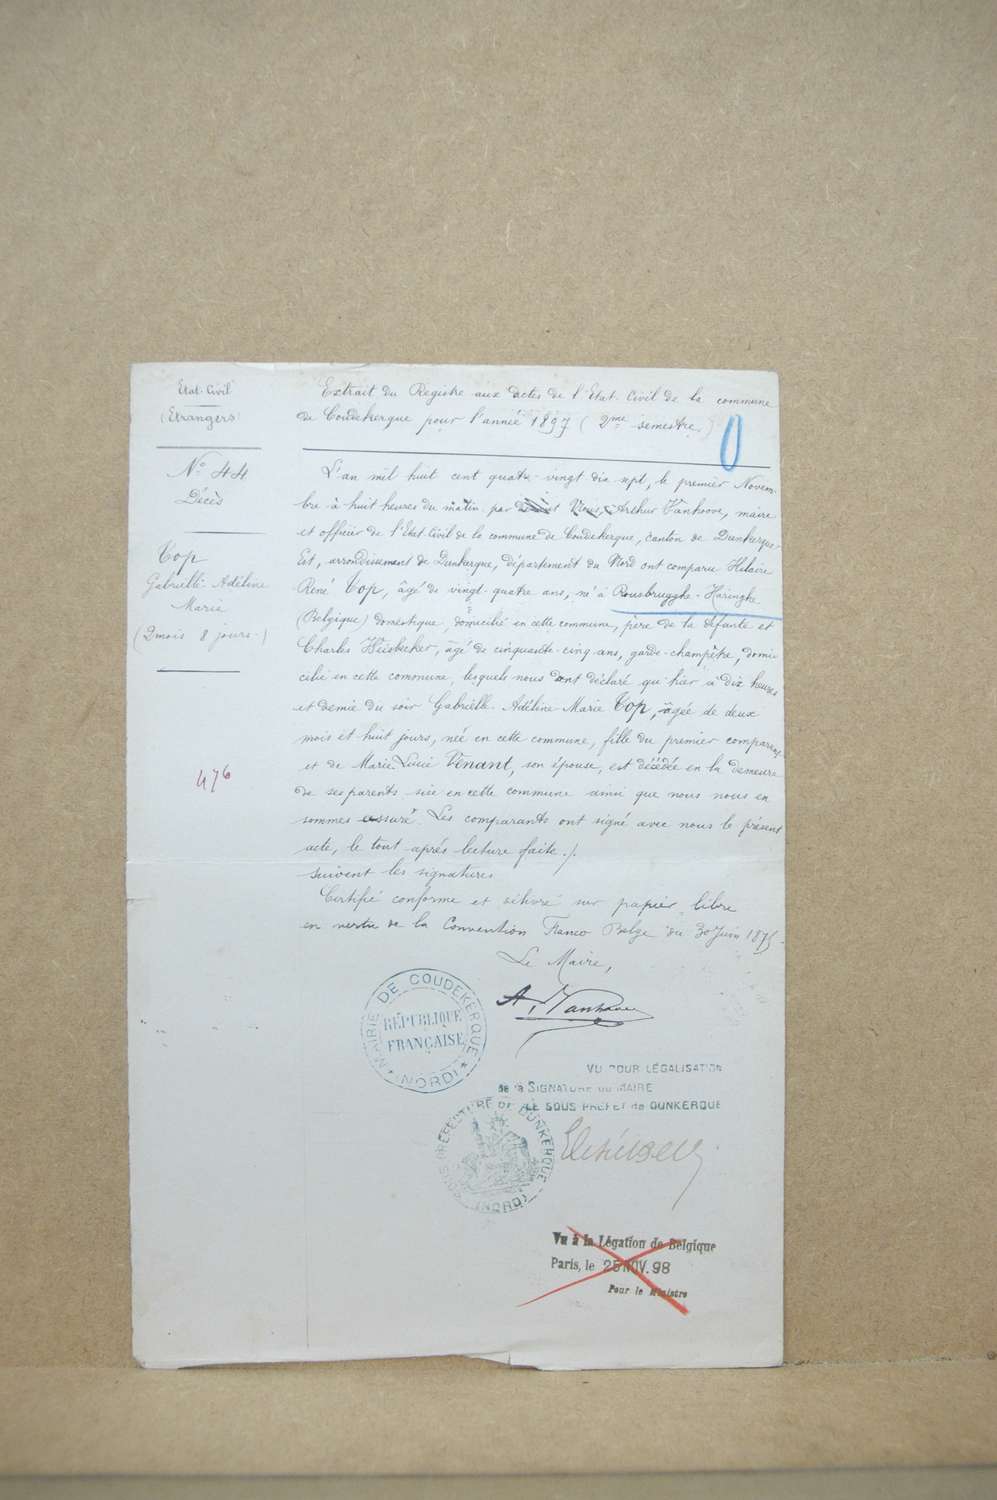 Etat-Civil
(Etrangers)
N° 44
Décès
Top
Gabrielle-Adéline
Marie
(2 mois 8 jours-)
476
Extrait du Registre aux actes de l'Etat-Civil de la commune
de Coudekerque pour l'année 1897 (2me semestre.)
L'an mil huit cent quatre-vingt dix sept, le premier Novem-
bre à huit heures du matin par devant Nous, Arthur Vanhoove, maire
et officier de l'Etat Civil de la commune de Coudekerque, canton de Dunkerque-
Est, arrondissement de Dunkerque, département du Nord ont comparu Hilaire
René Top, âgé de vingt-quatre ans, né à Rousbrugghe-Haringhe
(Belgique) domestique, domicilié en cette commune, père de la défunte et
Charles, âgé de cinquante-cinq ans, garde-champêtre, domi
cilié en cette commune, lesquels nous ont déclaré qu'hier à dix heures
et demie du soir Gabrielle-Adéline-Marie Top, âgée de deux
mois et huit jours, née en cette commune, fille du premier comparant
et de Marie-Lucie Venant, son épouse, est décédée en la demeure
de ses parents sise en cette commune ainsi que nous nous en
sommes assuré. Les comparants ont signé avec nous le présent
acte, le tout après lecture faite./.
suivent les signatures
Certifié conforme et délivré sur papier libre
en vertu de la Convention Franco Belge du 30 Juin 1875-
Le Maire,
A. Vanhoove
MAIRIE DE COUDEKERQUE
RÉPUBLIQUE
FRANÇAISE
(NORD)
VU POUR LÉGALISATION
de la SIGNATURE DU MAIRE
LE SOUS PRÉFET de DUNKERQUE
SOUS PRÉFECTURE DE DUNKERQUE
(NORD)
Vu à la Légation de Belgique
Paris, le 25 NOV. 98
Pour le Ministre